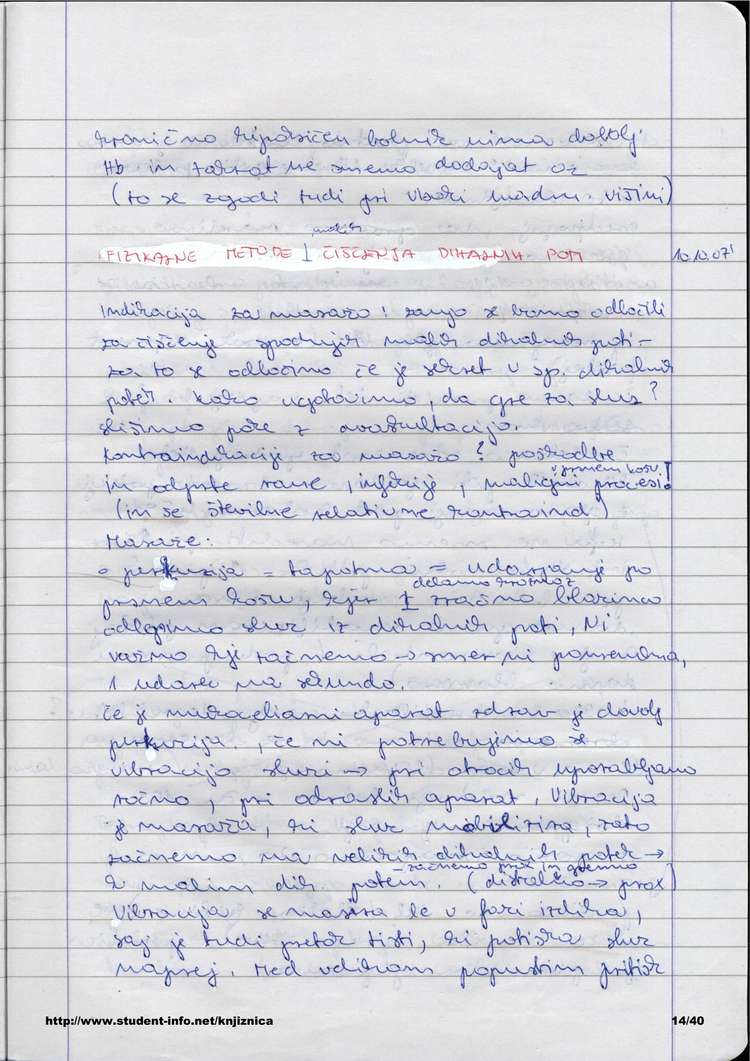 kronično hipoksičen bolnik nima dovolj
Hb in takrat ne smemo dodajat O2
(to se zgodi tudi pri visoki nadm. višini)
malih
FIZIKALNE METODE ⊥ ČIŠČENJA DIHALNIH POTI 10.10.07'
Indikacija za masažo: zanjo se bomo odločili
za čiščenje spodnjih malih dihalnih poti -
za to se odločimo če je sekret v sp. dihalnih
poteh. Kako ugotovimo, da gre za sluz?
slišimo poke z avskultacijo.
Kontraindikacije za masažo? poškodbe
v prsnem košu!
in odprte rane, infekcije, maligni procesi!
(in še številne relativne kontraind)
Masaže:
o perkuzija = tapotma = udarjanje po
delamo krožno z
prsnem košu, kjer ⊥ zračno blazinco
odlepimo sluz iz dihalnih poti, Ni
važno kje začnemo → smer ni pomembna,
1 udarec na sekundo.
če je mukociliarni aparat zdrav je dovolj
perkuzija, če ni potrebujemo še
vibracijo sluzi → pri otrocih uporabljamo
ročno, pri odraslih aparat, Vibracija
je masaža, ki sluz mobilizira, zato
začnemo na velikih dihalnih poteh →
- začnemo prox in gremo
k malim dih. potem. (distalno → prox)
Vibracija se masira le v fazi izdiha,
saj je tudi pretok tisti, ki potiska sluz
naprej. Med vdihom popustim pritisk
http://www.student-info.net/knjiznica 14/40